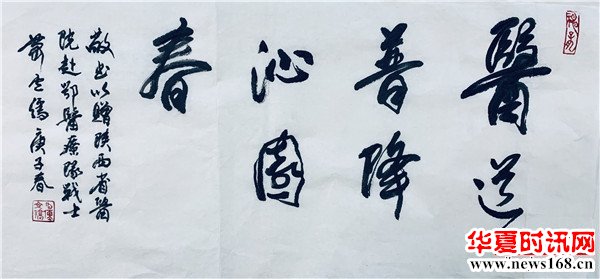 醫道
普降
沁園
春
敬书以贈陝西省醫
院赴鄂醫療隊战士
萧云儒庚子春
华夏时讯网
www.news168.cn